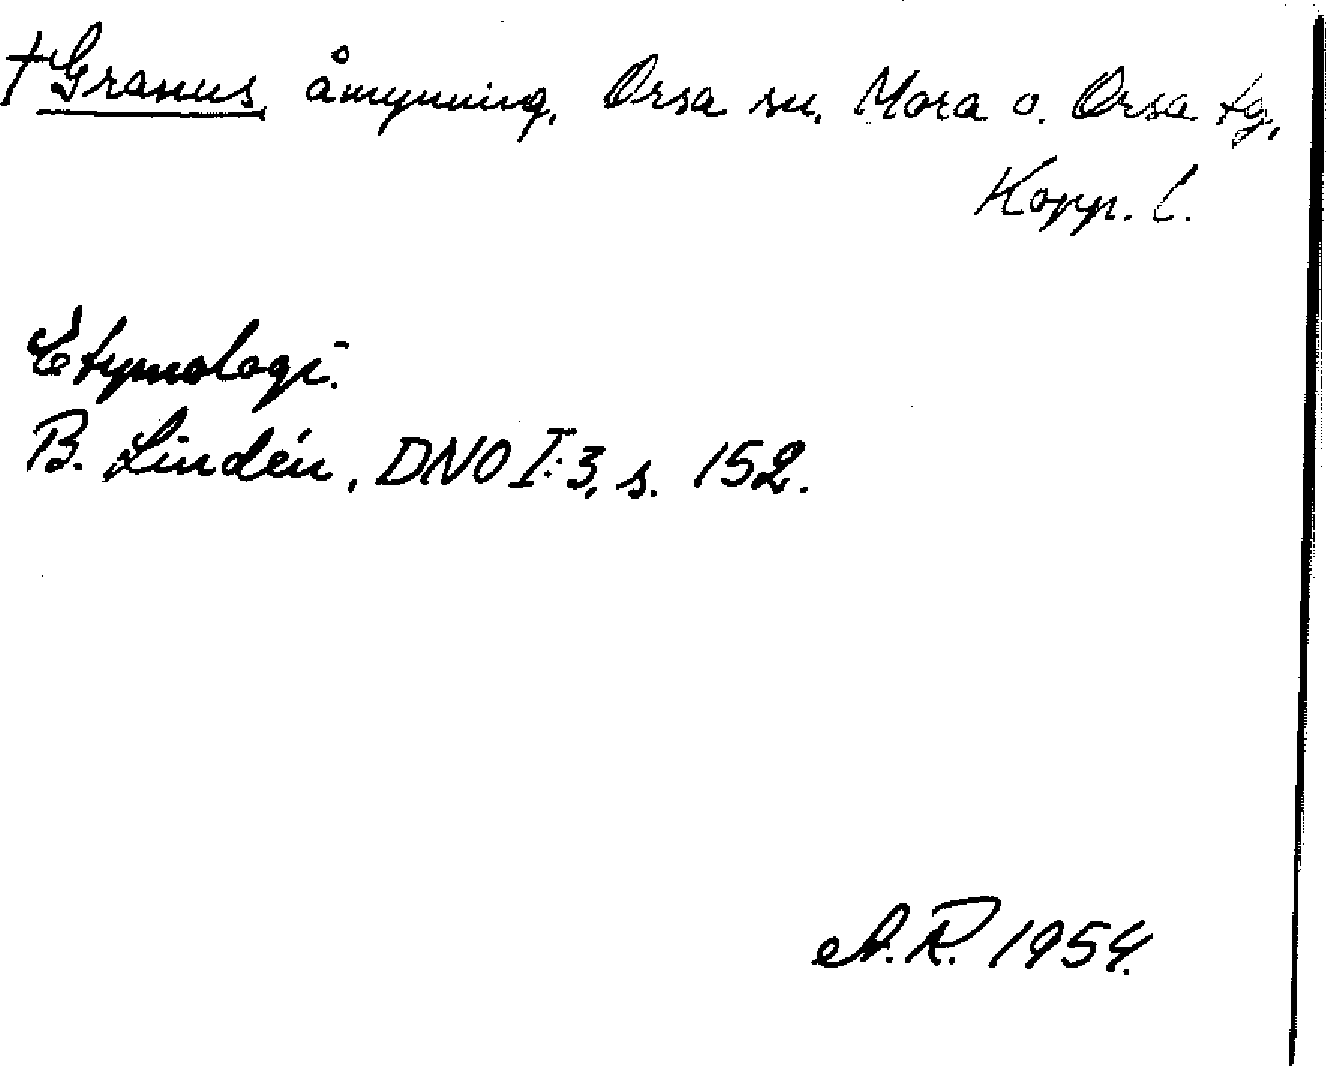 †Granus, åmynning, Orsa sn, Mora o. Orsa tg,
Kopp. l.
Etymologi.
B. Lindén, DNO I:3, s. 152.
A.R. 1954.